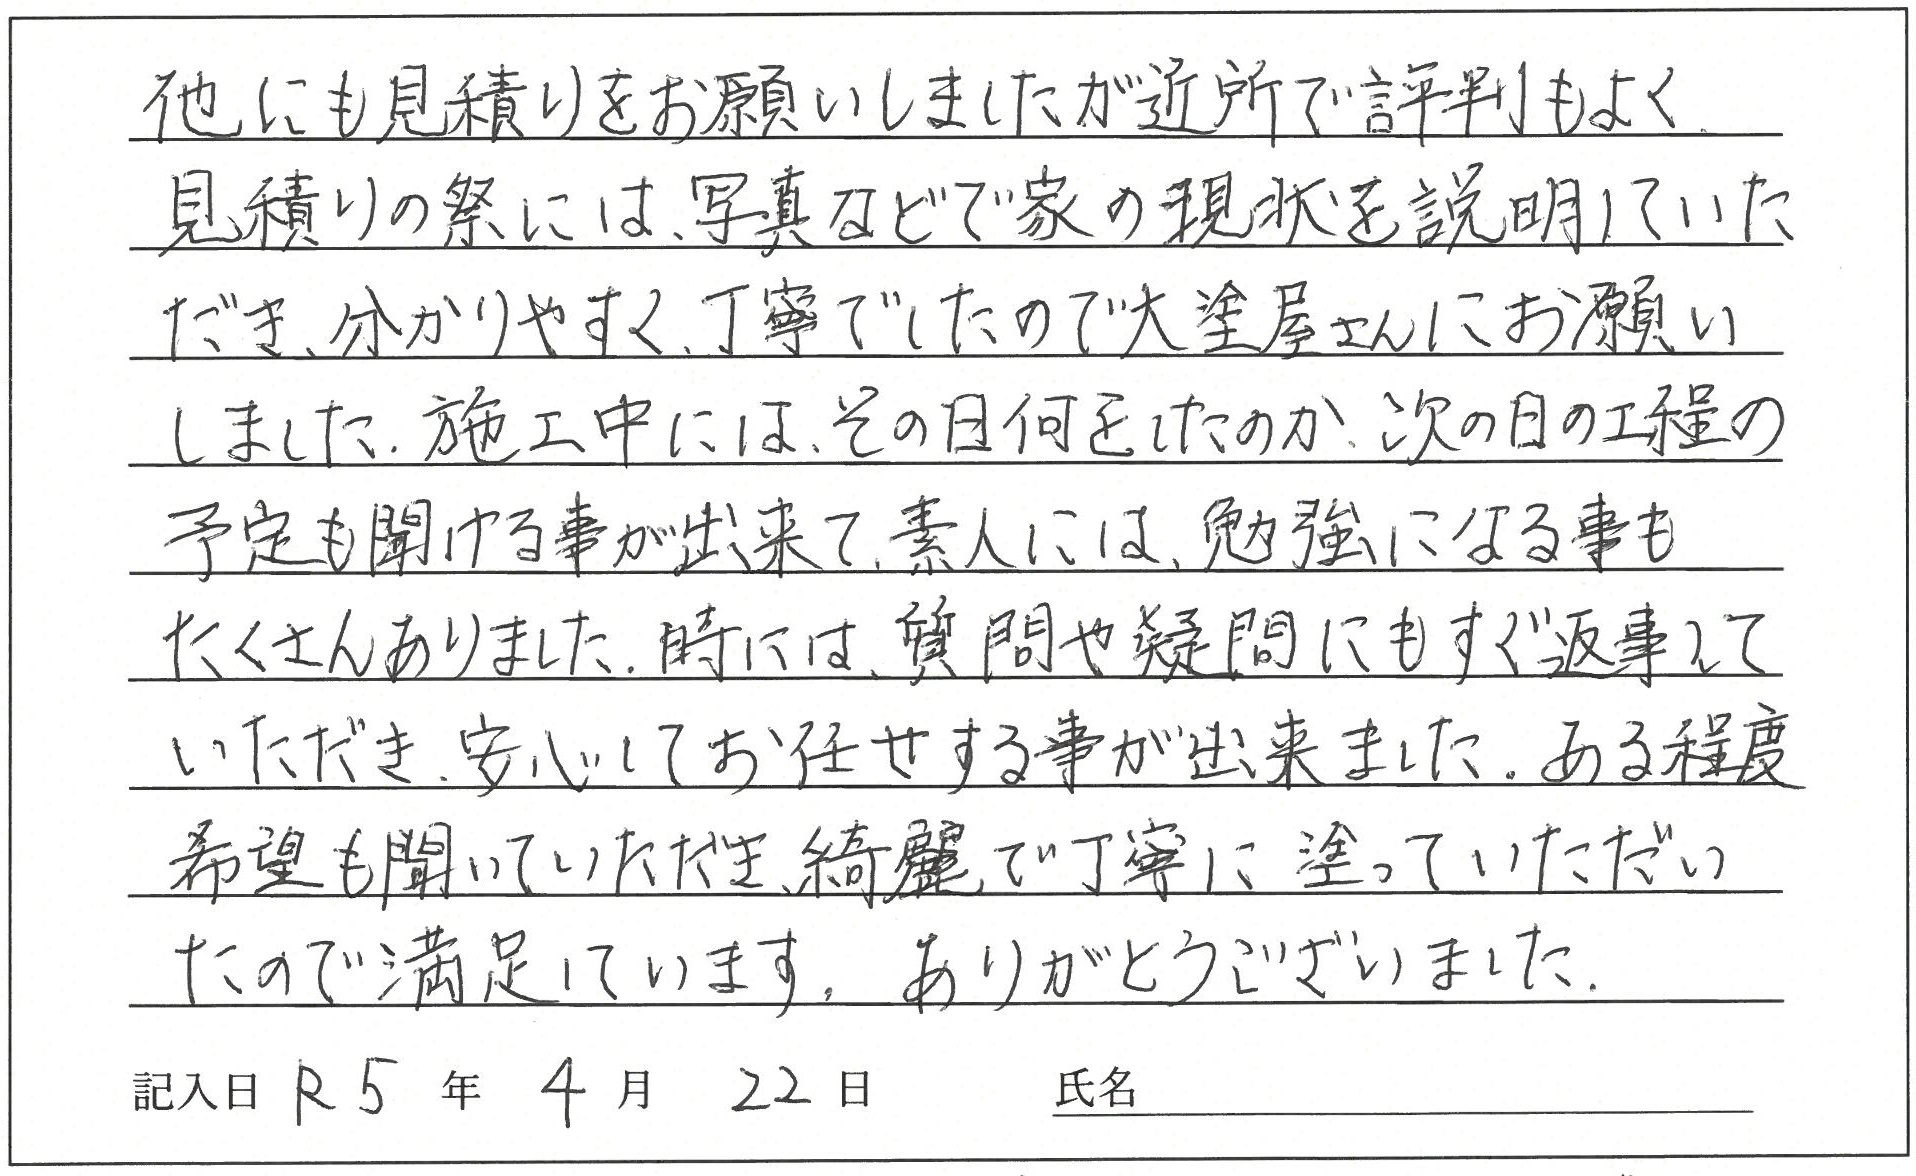 他にも見積りをお願いしましたが近所で評判もよく、
見積りの祭には、写真などで家の現状を説明していた
だき、分かりやすく、丁寧でしたので大塗屋さんにお願い
しました。施工中には、その日何をしたのか、次の日の工程の
予定も聞ける事が出来て、素人には、勉強になる事も
たくさんありました。時には、質問や疑問にもすぐ返事して
いただき、安心してお任せする事が出来ました。ある程度
希望も聞いていただき、綺麗で丁寧に塗っていただい
たので満足しています。ありがとうございました。
記入日 R5年 4月 22日 氏名